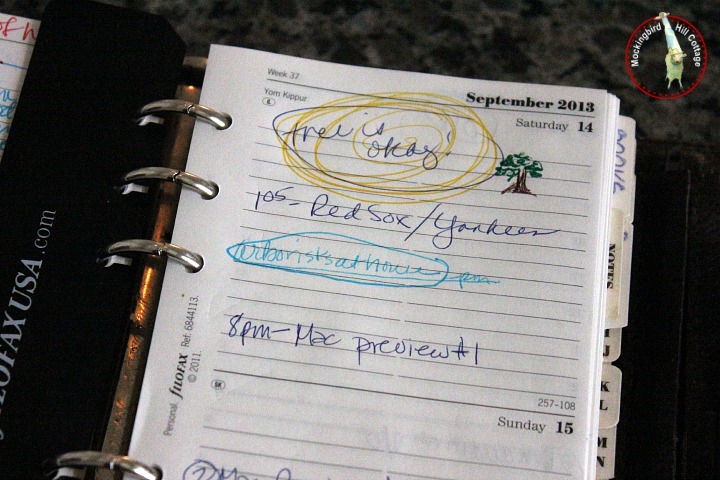 Mockingbird Hill Cottage
Week 37
September 2013
Yom Kippur
Saturday 14
tree is
okay!
105- Red Sox/Yankees
Arborists at House pm
8pm- Mac preview #1
257-108
Sunday 15
FILOFAX USA.com
Personal filofax Ref: 6844113.
© 2011.
NOTES
J
K
L
M
N